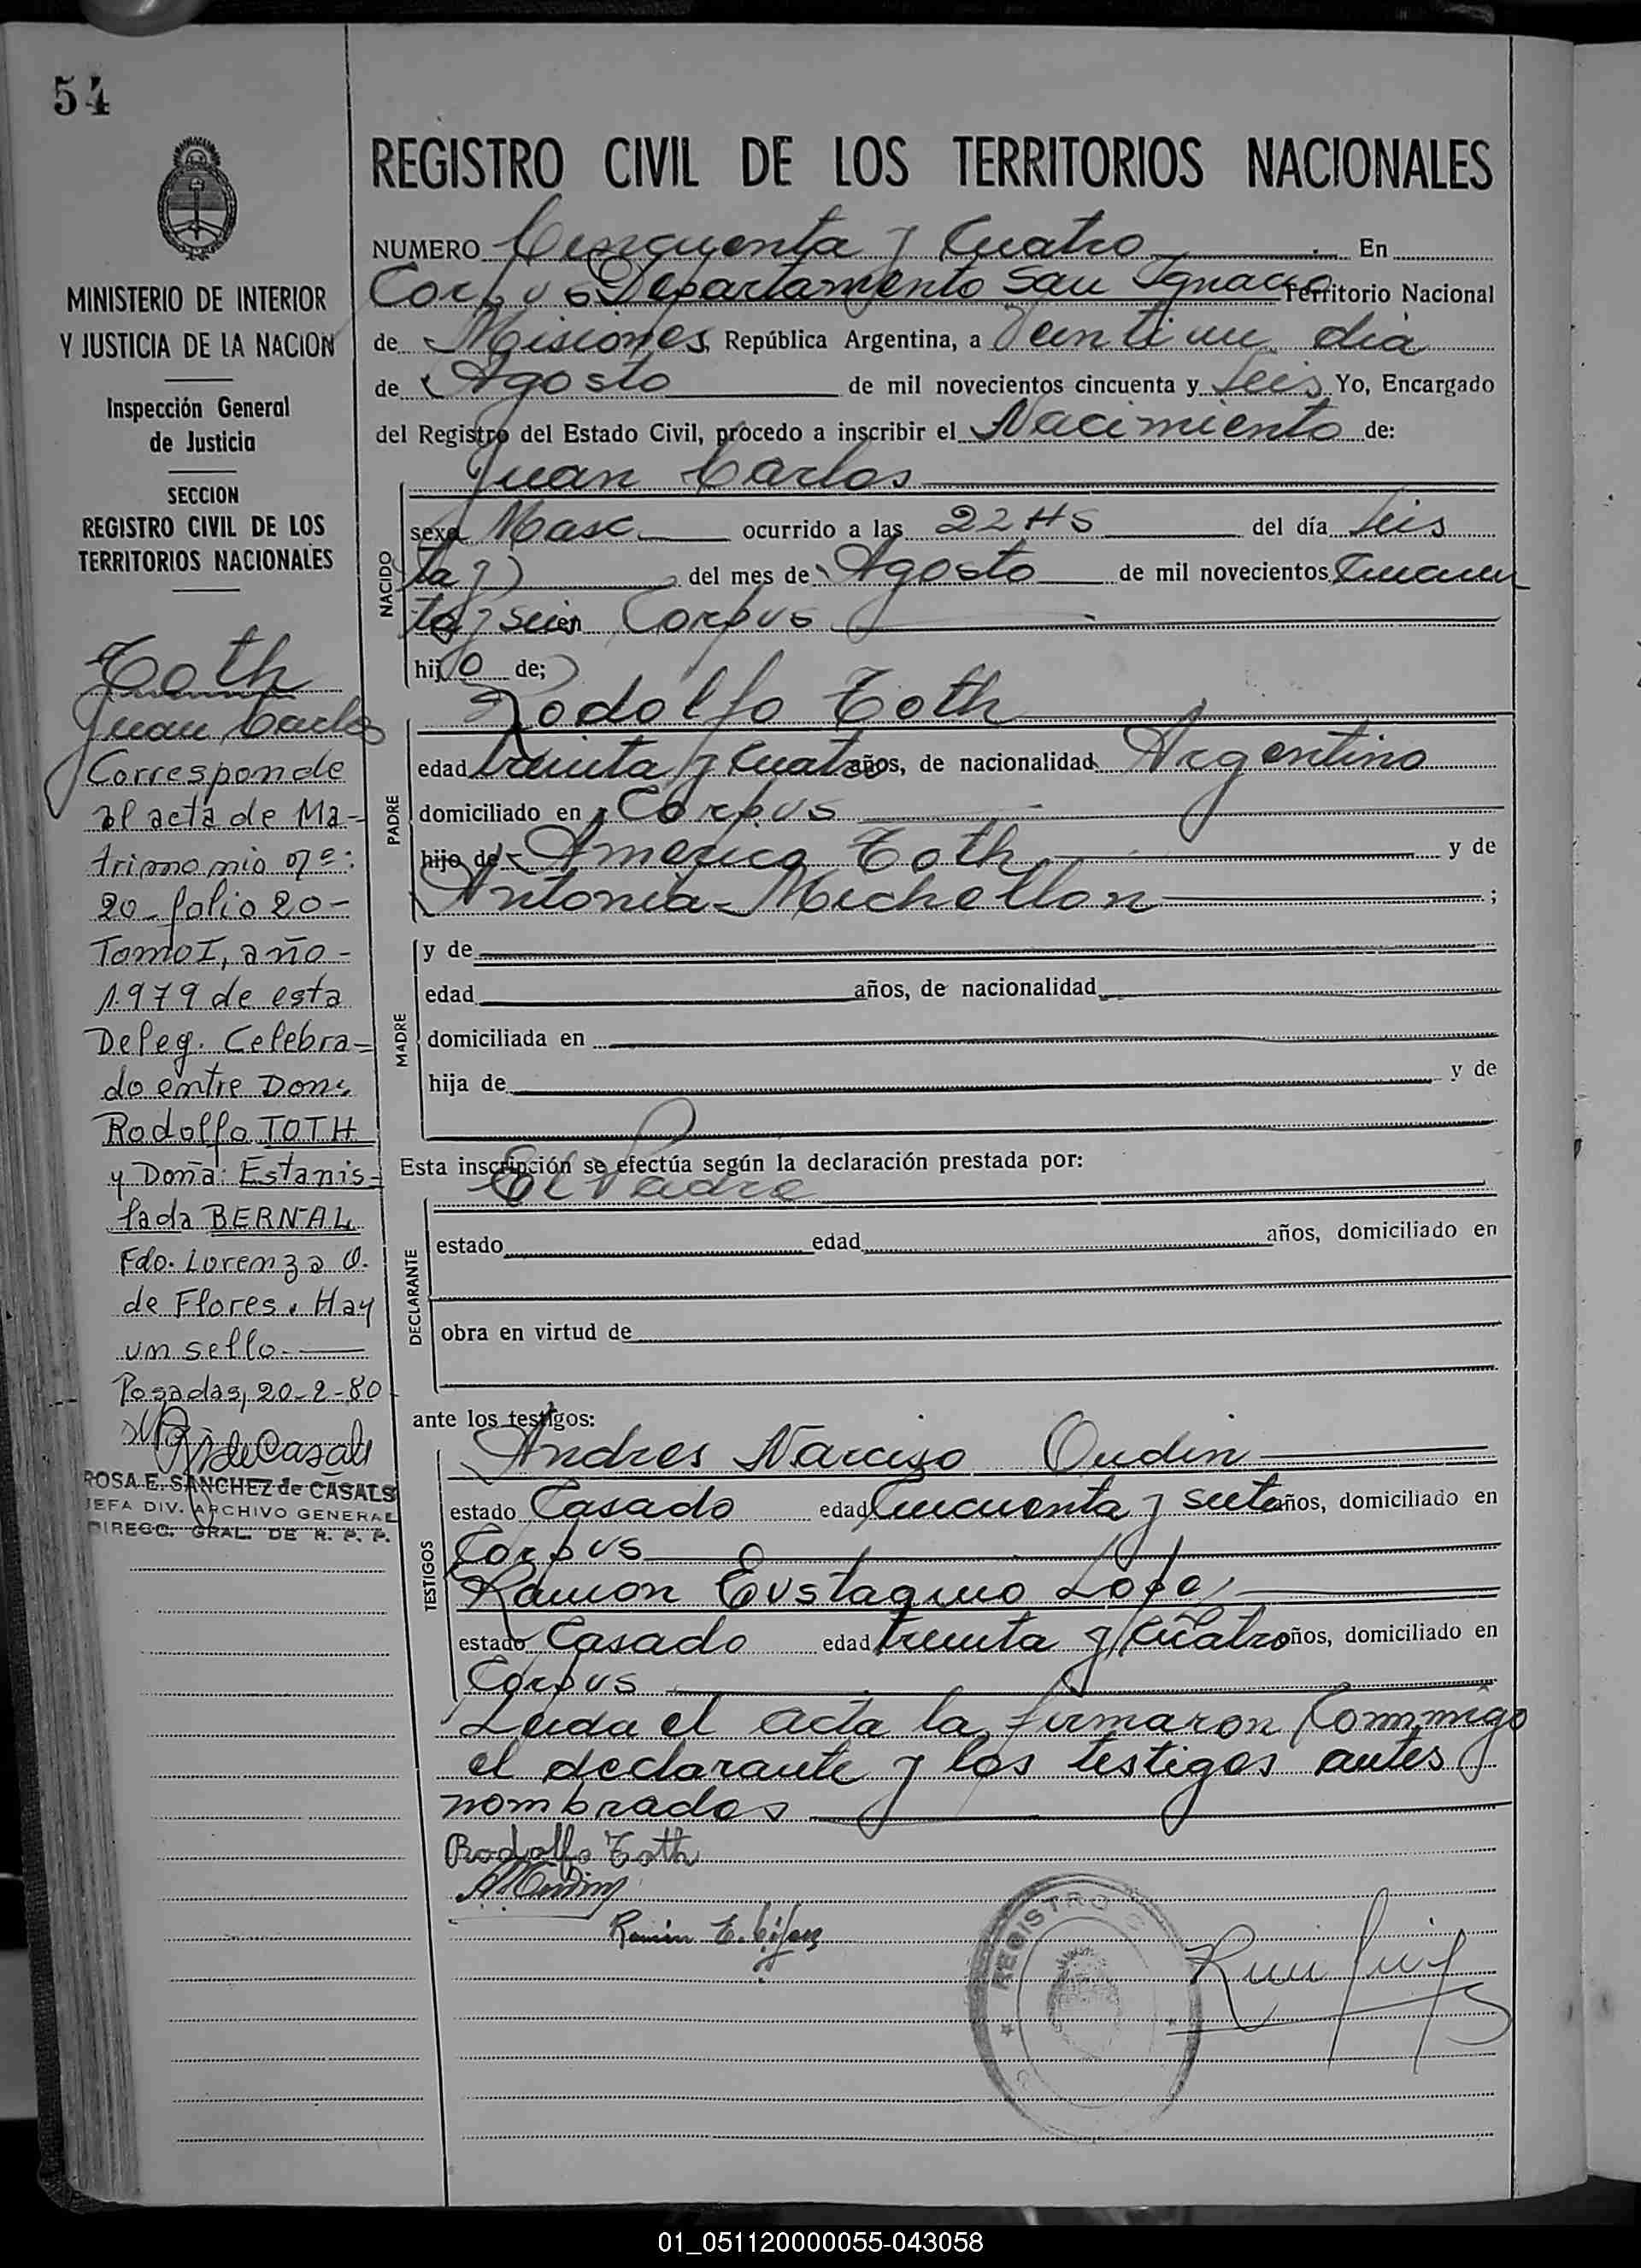 54
MINISTERIO DE INTERIOR
Y JUSTICIA DE LA NACION
Inspección General
de Justicia
SECCION
REGISTRO CIVIL DE LOS
TERRITORIOS NACIONALES
Toth
Juan Carlos
Corresponde
al acta de Ma-
trimonio nº:
20 - folio 20 -
Tomo I, año -
1.979 de esta
Deleg. Celebra-
do entre Don:
Rodolfo TOTH
y Doña: Estanis-
lada BERNAL
Fdo. Lorenza O.
de Flores. Hay
un sello.
Posadas, 20-2-80
de Casals
ROSA E. SANCHEZ de CASALS
JEFA DIV. ARCHIVO GENERAL
DIRECC. GRAL. DE R. P. P.
REGISTRO CIVIL DE LOS TERRITORIOS NACIONALES
NUMERO Cincuenta y Cuatro En
Corpus Departamento San Ignacio Territorio Nacional
de Misiones, República Argentina, a Veintiun dia
de Agosto de mil novecientos cincuenta y seis Yo, Encargado
del Registro del Estado Civil, procedo a inscribir el Nacimiento de:
Juan Carlos
NACIDO
sexo Masc ocurrido a las 22 Hs del día seis
del mes de Agosto de mil novecientos
Corpus
hijo de;
PADRE
Rodolfo Toth
edad treinta y Cuatro años, de nacionalidad Argentino
domiciliado en Corpus
hijo de America Toth y de
Antonia Michellon ;
MADRE
y de
edad años, de nacionalidad
domiciliada en
hija de y de
Esta inscripción se efectúa según la declaración prestada por:
El Padre
DECLARANTE
estado edad años, domiciliado en
obra en virtud de
ante los testigos:
TESTIGOS
Andres Narciso Oudin
estado Casado edad Cincuenta y siete años, domiciliado en
Corpus
Ramon Eustaquio Lopez
estado Casado edad treinta y Cuatro años, domiciliado en
Corpus
Leida el acta la firmaron Commigo
el declarante y los testigos antes
nombrados
Rodolfo Toth
Ramón E. López
REGISTRO
01_051120000055-043058